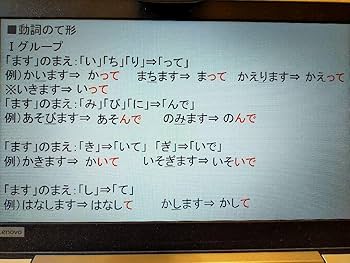 ■動詞のて形
Ⅰグループ
「ます」のまえ：「い」「ち」「り」⇒「って」
例）かいます⇒ かって　まちます⇒ まって　かえります⇒ かえって
※いきます⇒ いって
「ます」のまえ：「み」「び」「に」⇒「んで」
例）あそびます⇒ あそんで　のみます⇒ のんで
「ます」のまえ：「き」⇒「いて」「ぎ」⇒「いで」
例）かきます⇒ かいて　いそぎます⇒ いそいで
「ます」のまえ：「し」⇒「て」
例）はなします⇒ はなして　かします⇒ かして
Lenovo